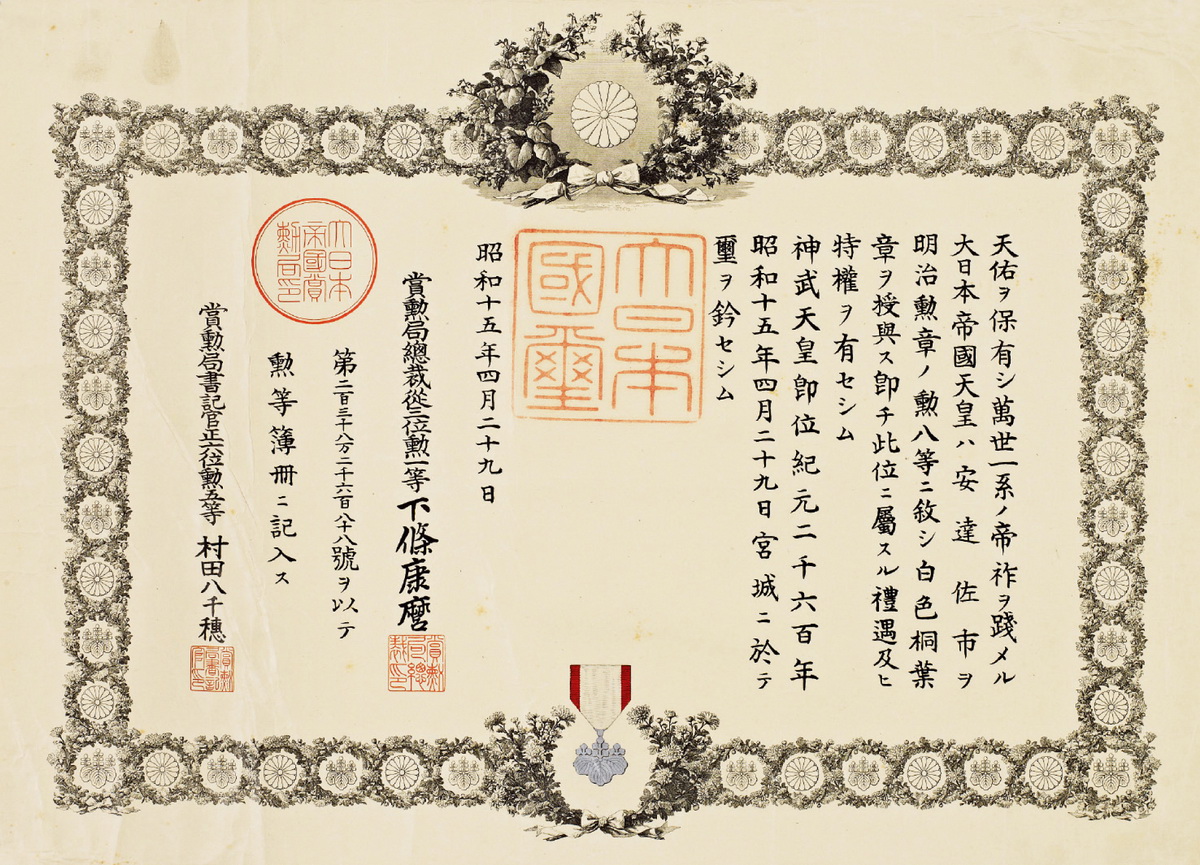 天佑ヲ保有シ萬世一系ノ帝祚ヲ踐メル
大日本帝國天皇ハ安達佐市ヲ
明治勲章ノ勲八等ニ敘シ白色桐葉
章ヲ授與ス卽チ此位ニ屬スル禮遇及ヒ
特權ヲ有セシム
神武天皇卽位紀元二千六百年
昭和十五年四月二十九日宮城ニ於テ
璽ヲ鈐セシム
大日本
國璽
昭和十五年四月二十九日
賞勲局總裁從三位勲一等下條康麿
賞勲局總裁印
第二百三十八万二千六百八十八號ヲ以テ
勲等簿冊ニ記入ス
大日本
帝國賞
勲局印
賞勲局書記官正六位勲五等村田八千穗
賞勲局書記官印